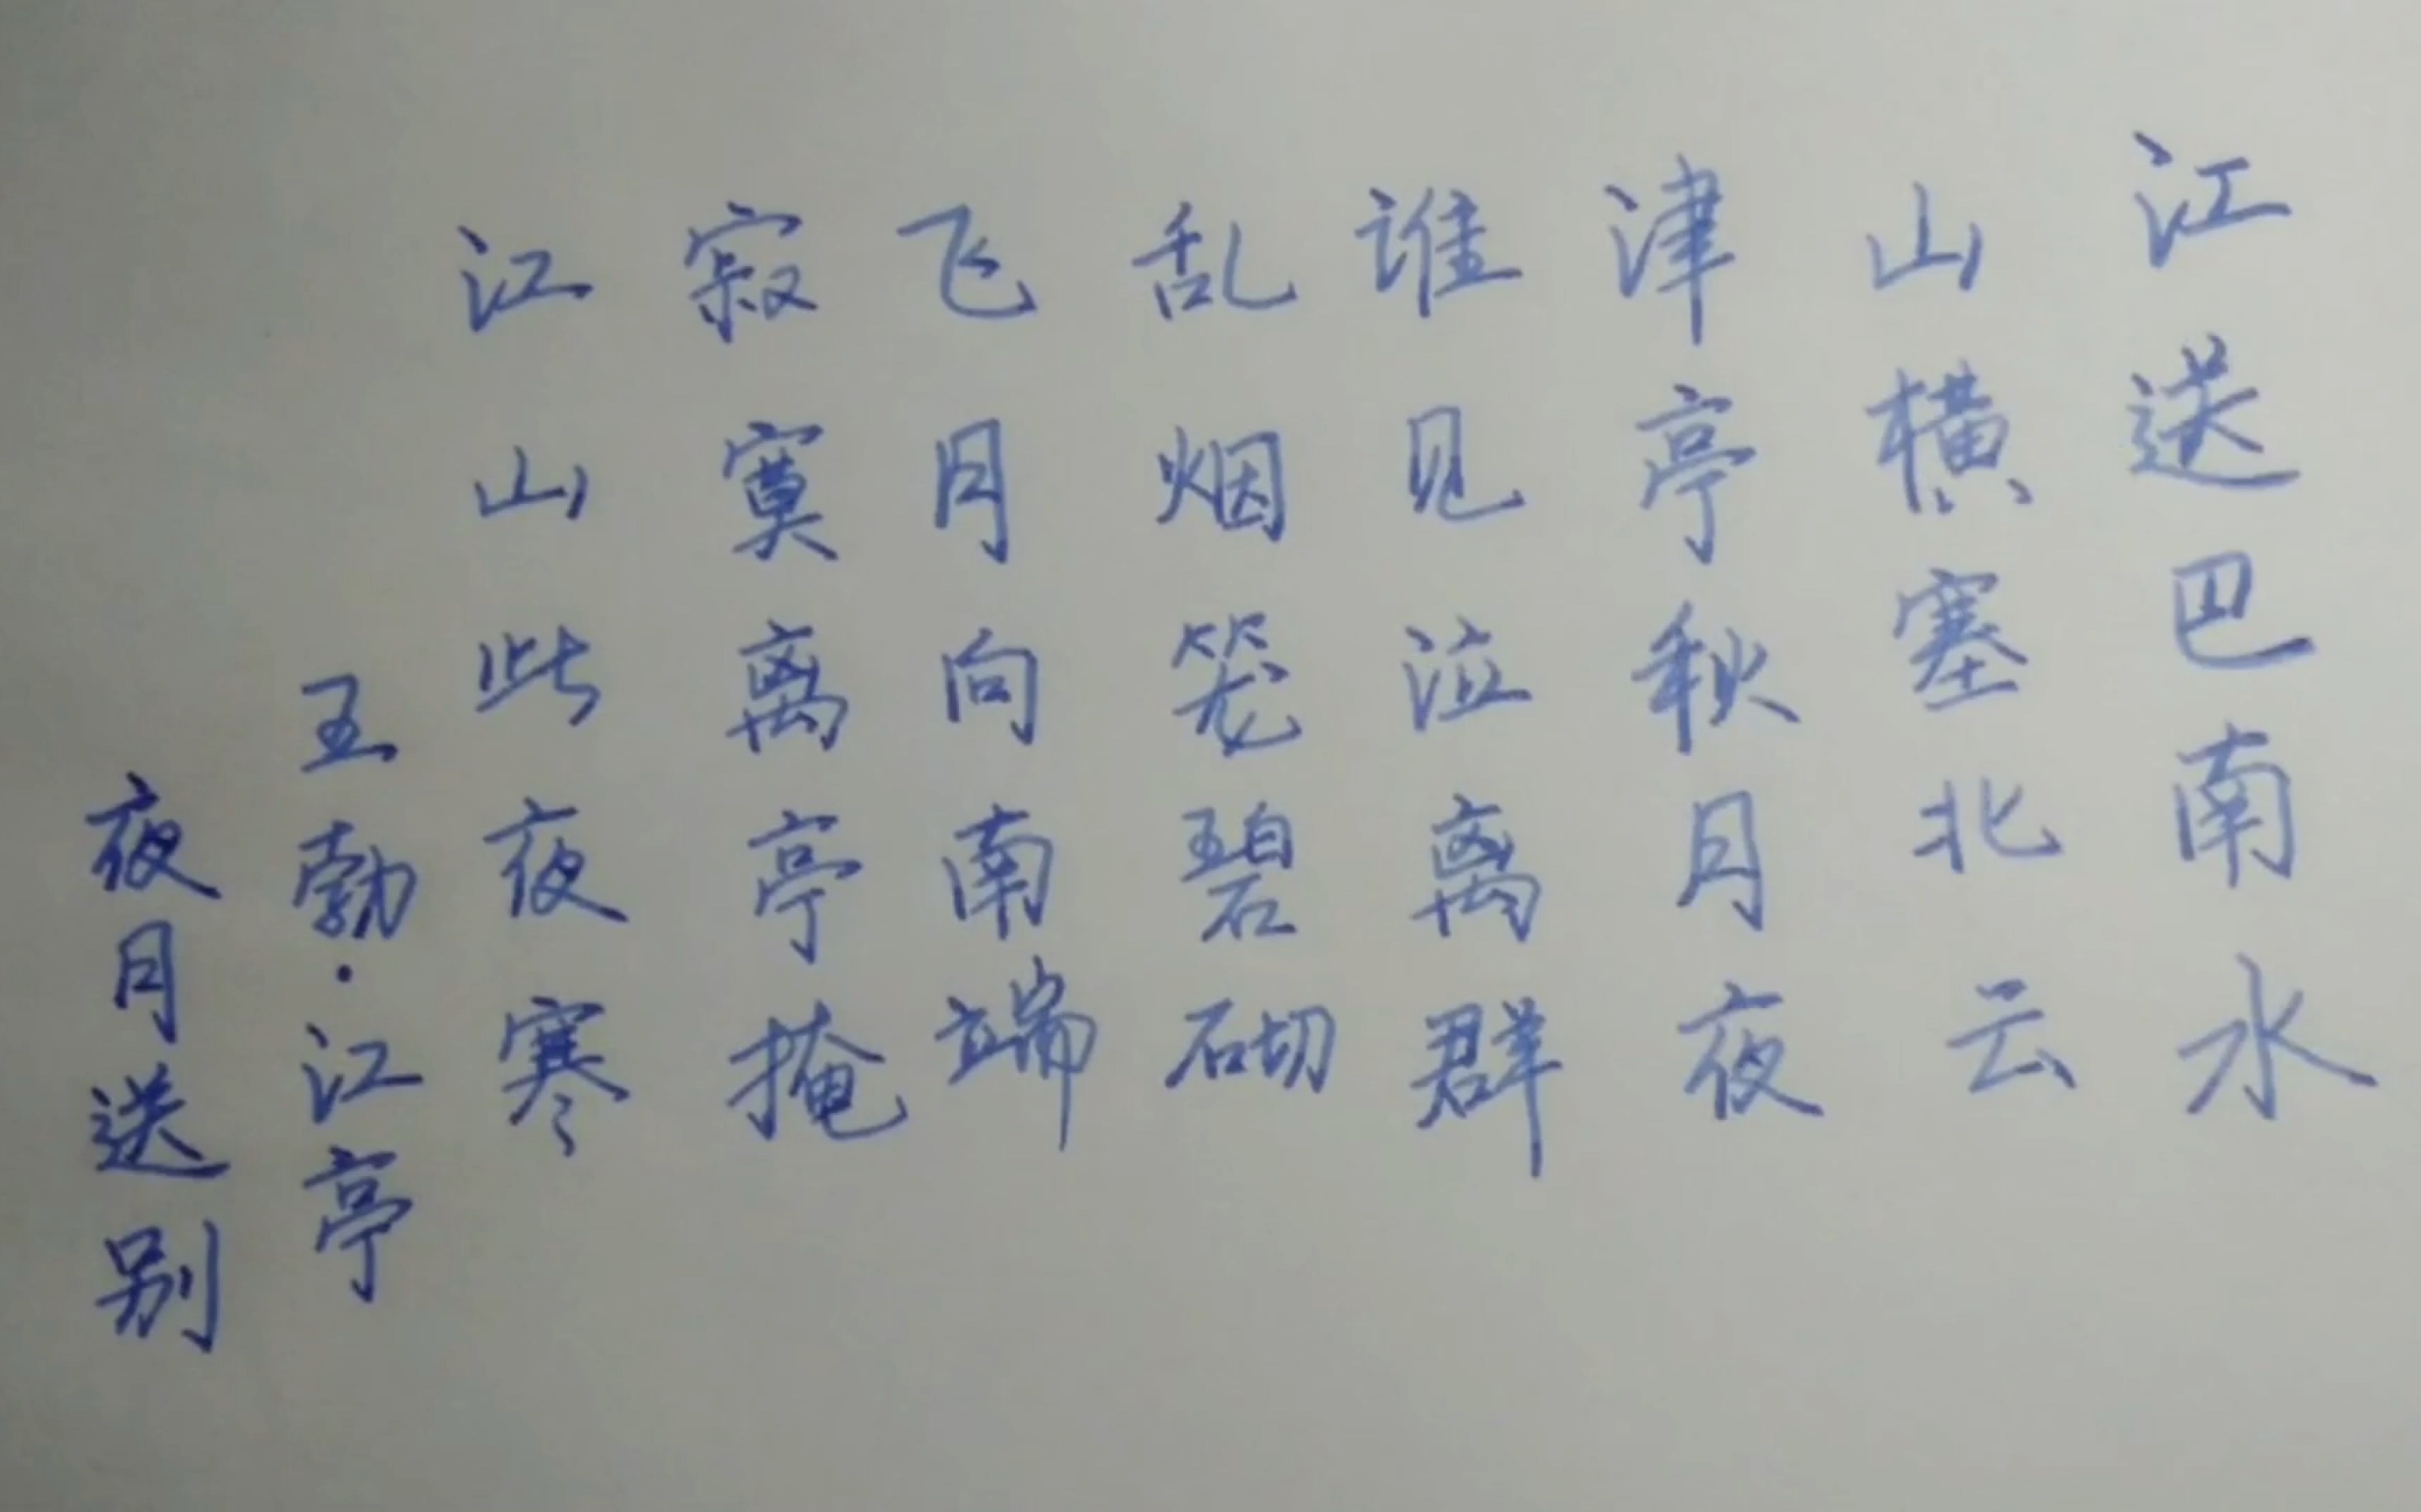 江送巴南水
山横塞北云
津亭秋月夜
谁见泣离群
乱烟笼碧砌
飞月向南端
寂寞离亭掩
江山此夜寒
王勃·江亭
夜月送别